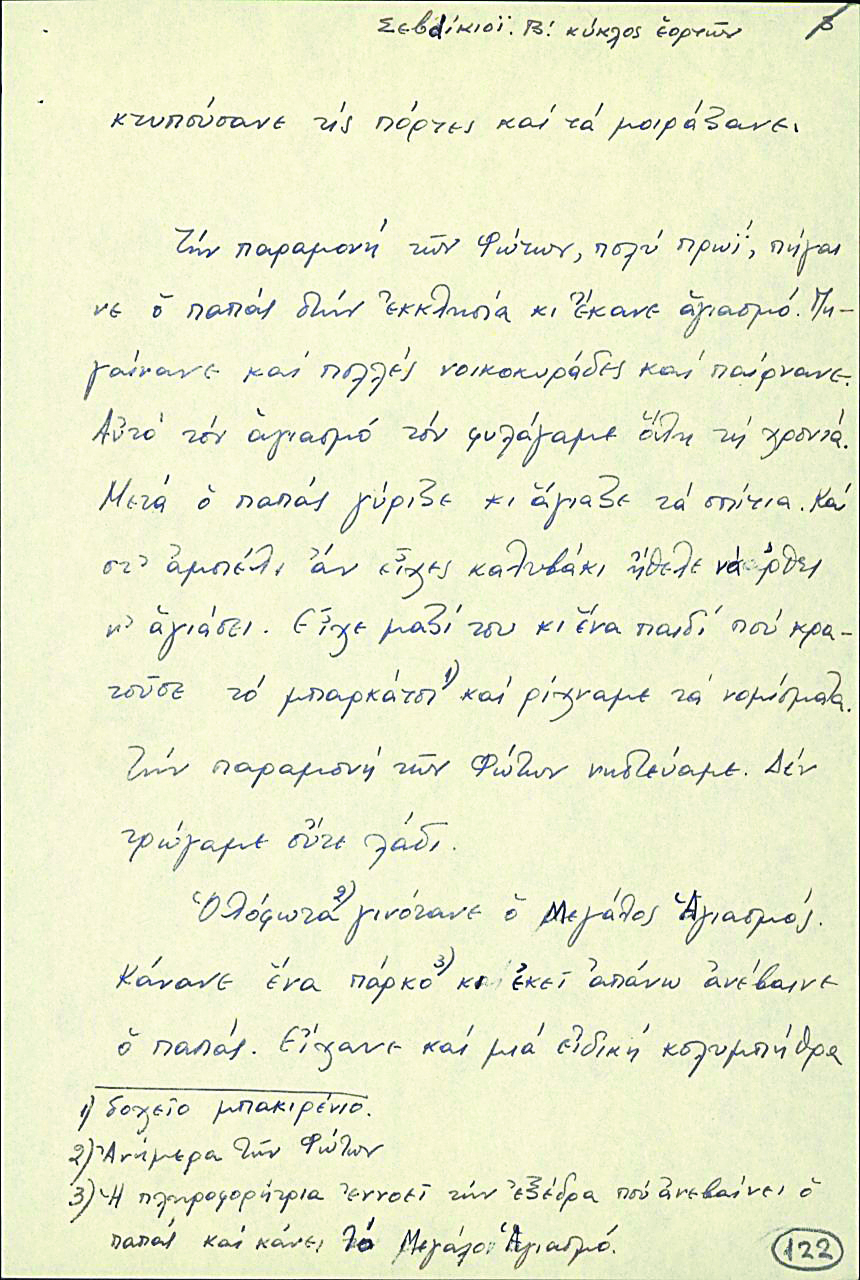 Σεβδίκιοϊ. Β! κύκλος ἑορτῶν
β
κτυπούσανε τίς πόρτες καί τά μοιράζανε.
Τήν παραμονή τῶν Φώτων, πολύ πρωΐ, πήγαι
νε ὁ παπάς στήν Ἐκκλησία κι ἔκανε ἁγιασμό. Πη-
γαίνανε καί πολλές νοικοκυράδες καί παίρνανε.
Αὐτό τόν ἁγιασμό τόν φυλάγαμε ὅλη τή χρονιά.
Μετά ὁ παπάς γύριζε κι ἅγιαζε τά σπίτια. Καί
στ' ἀμπέλι ἄν εἶχες καλυβάκι ἤθελε νά ἔρθει
ν' ἁγιάσει. Εἶχε μαζί του κι ἕνα παιδί πού κρα-
τοῦσε τό μπαρκάτσι 1) καί ρίχναμε τά νομίσματα.
Τήν παραμονή τῶν Φώτων νηστεύαμε. Δέν
τρώγαμε οὔτε λάδι.
Ὁλόφωτα 2) γινότανε ὁ Μεγάλος Ἁγιασμός.
Κάνανε ἕνα πάρκο 3) κι ἐκεῖ ἀπάνω ἀνέβαινε
ὁ παπάς. Εἴχανε καί μιά εἰδική κολυμπήθρα
1) δοχεῖο μπακιρένιο.
2) Ἀνήμερα τῶν Φώτων
3) Ἡ πληροφορήτρια ἐννοεῖ τήν ἐξέδρα πού ἀνεβαίνει ὁ
παπάς καί κάνει τό Μεγάλο Ἁγιασμό.
122